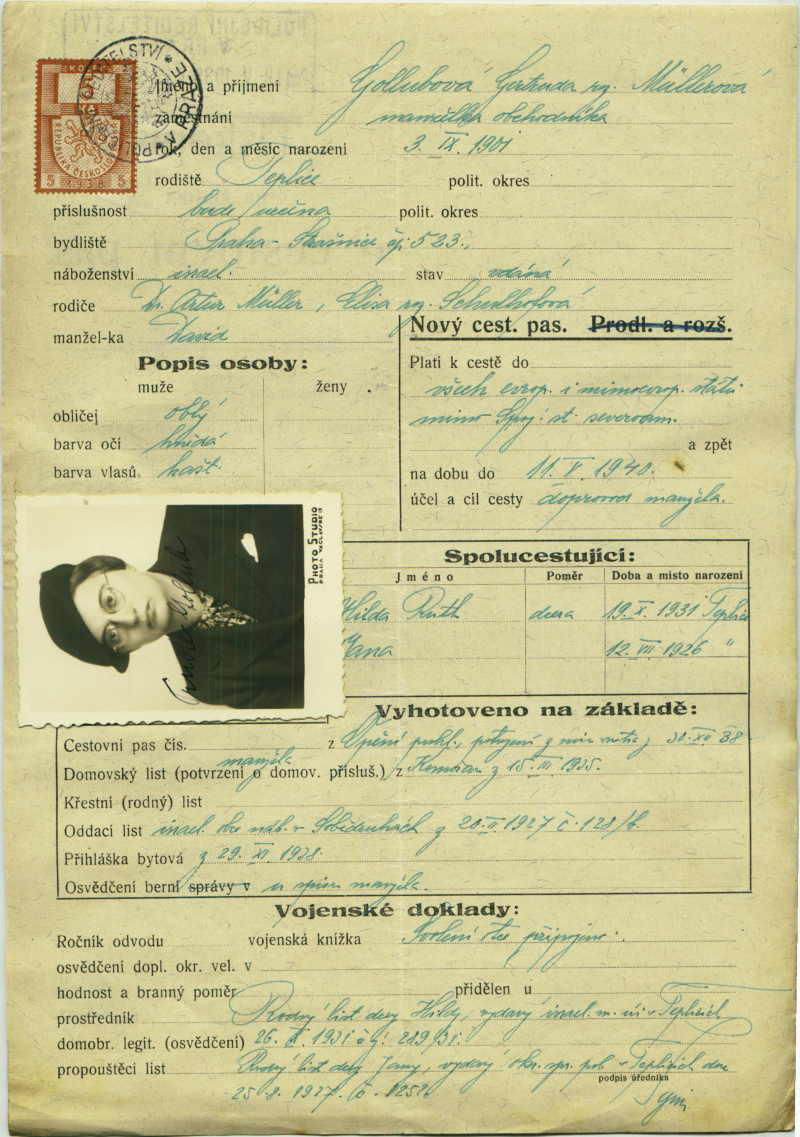 POLICEJNÍ ŘEDITELSTVÍ
V PRAZE
KOLEK
5 5
REPUBLIKA ČESKOSLOVENSKÁ
1938
Jméno a příjmení Gollubová Gertruda roz. Müllerová
zaměstnání manželka obchodníka
rok, den a měsíc narození 3. IX. 1901
rodiště Teplice polit. okres
příslušnost bude určena polit. okres
bydliště Praha - Strašnice čp. 523.,
náboženství israel. stav vdaná
rodiče Dr. Artur Müller, Elisa roz. Schulhofová
manžel-ka David
Nový cest. pas. Prodl. a rozš.
Popis osoby:
muže ženy
obličej oblý
barva očí hnědá
barva vlasů kašt.
Platí k cestě do
všech evrop. i mimoevrop. států
mimo Spoj. st. severoam.
a zpět
na dobu do 11. V. 1940.
účel a cíl cesty doprovod manžela.
PHOTO STUDIO
Spolucestující:
Jméno Poměr Doba a místo narození
Hilda Ruth dcera 19. X. 1931 Teplice
Jana 12. VII. 1926 "
Vyhotoveno na základě:
Cestovní pas čís. z 30. XII. 38
manžela
Domovský list (potvrzení o domov. přísluš.) z 15. III. 1935.
Křestní (rodný) list
Oddací list israel. obce náb. v Soběchlebích z 20. II. 1927 č. 128/6.
Přihláška bytová z 29. XI. 1938.
Osvědčení berní správy v ve spise manžela.
Vojenské doklady:
Ročník odvodu vojenská knížka Svolení otce připojeno.
osvědčení dopl. okr. vel. v
hodnost a branný poměr přidělen u
prostředník Rodný list dcery Hildy, vydaný israel. m. úř. v Teplicích
domobr. legit. (osvědčení) 26. X. 1931 čj: 289/31.
propouštěcí list Rodný list dcery Jany, vydaný okr. spr. pol. v Teplicích dne
podpis úředníka
25. 8. 1927. č.